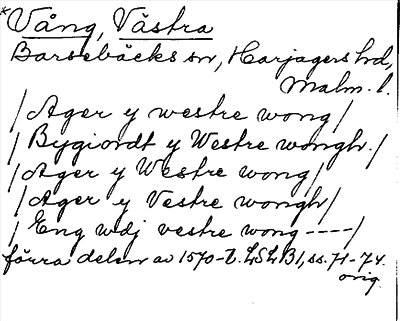 *Vång, Västra
Barsebäcks sn, Harjagers hrd,
Malm. l.
/Ager y westre wong/
/Bygiordt y Westre wongh./
/Ager y Westre wong/
/Ager y Vestre wongh/
/Eng wdj vestre wong----/
förra delen av 1570-t. LSLB1, ss. 71-74.
orig.